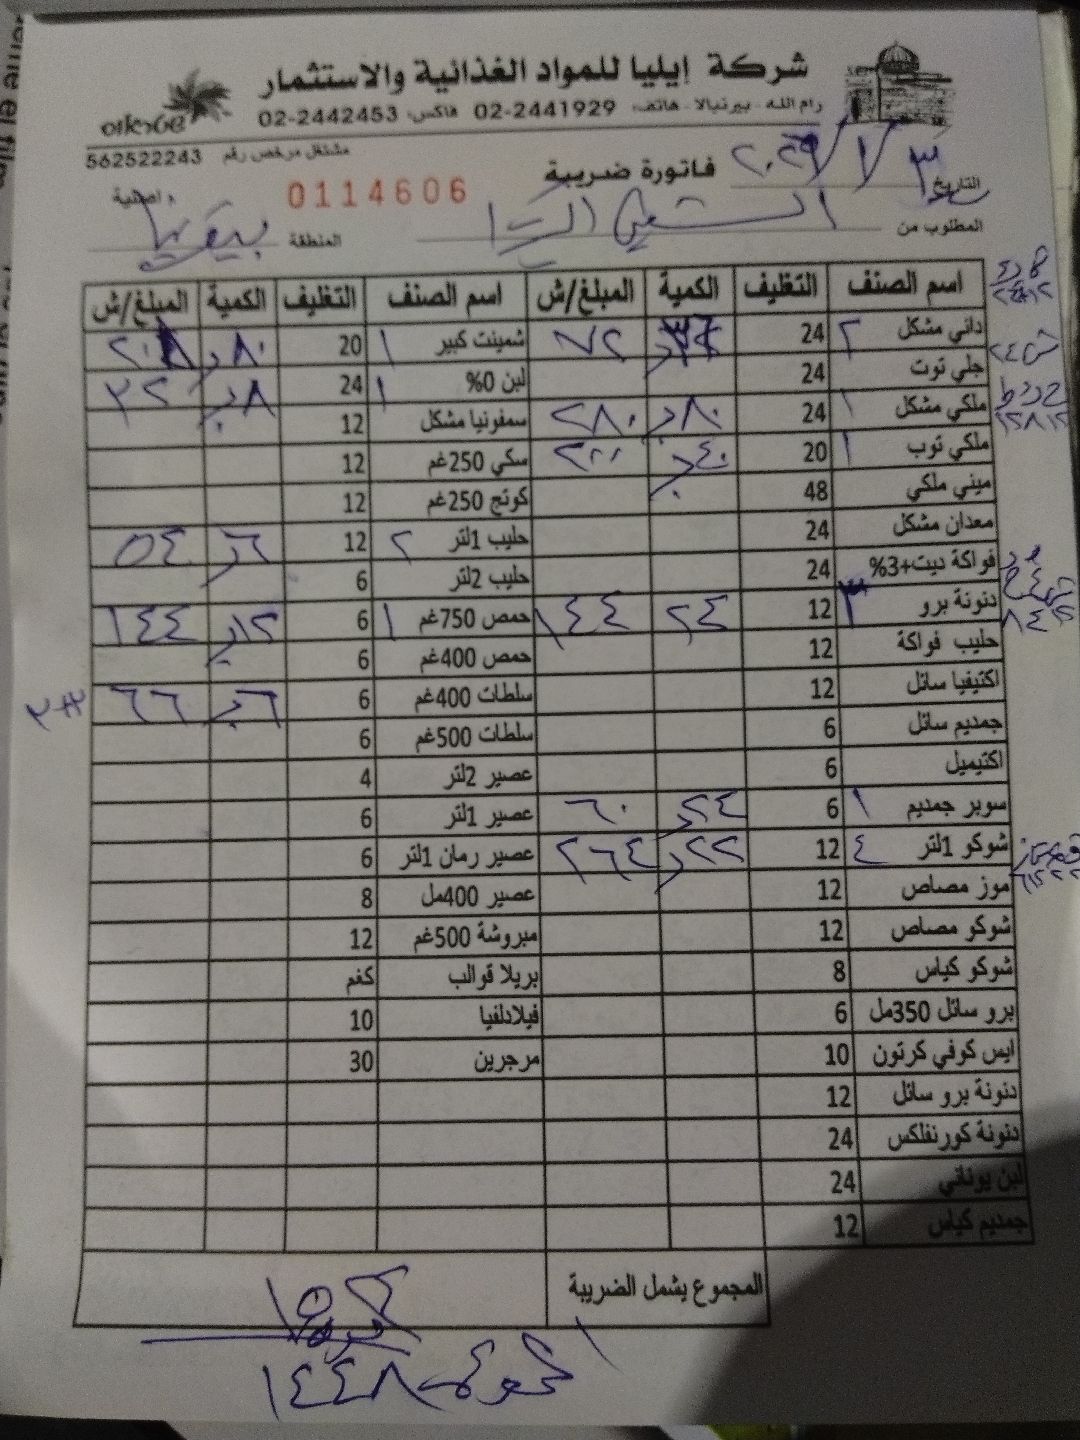 شركة إيليا للمواد الغذائية والاستثمار
رام الله - بيرنبالا - هاتف: 02-2441929 فاكس: 02-2442453
مشتغل مرخص رقم 562522243
فاتورة ضريبة
0114606
اصلية
التاريخ ٣ / ١ /
المطلوب من
المنطقة
اسم الصنف التغليف الكمية المبلغ/ش اسم الصنف التغليف الكمية المبلغ/ش
داني مشكل ٢ 24 ٧٢ شمينت كبير ١ 20 ٨٠
جلي توت 24 لبن 0% ١ 24 ٨ ٣٢
ملكي مشكل ١ 24 ٨٠ ٢٨٠ سمفونيا مشكل 12
ملكي توب ١ 20 ٤٠ ٢٠٠ سكي 250غم 12
ميني ملكي 48 كوتج 250غم 12
معدان مشكل 24 حليب 1لتر ٢ 12 ٦ ٥٤
فواكة ديت+3% 24 حليب 2لتر 6
دنونة برو ٣ 12 ٢٤ ١٤٤ حمص 750غم ١ 6 ١٢ ١٤٤
حليب فواكة 12 حمص 400غم 6
اكتيفيا سائل 12 سلطات 400غم 6 ٦ ٦٦
جمديم سائل 6 سلطات 500غم 6
اكتيميل 6 عصير 2لتر 4
سوبر جمديم ١ 6 ٢٤ ٦٠ عصير 1لتر 6
شوكو 1لتر ٤ 12 ٢٢ ٢٦٤ عصير رمان 1لتر 6
موز مصاص 12 عصير 400مل 8
شوكو مصاص 12 مبروشة 500غم 12
شوكو كياس 8 بريلا قوالب كغم
برو سائل 350مل 6 فيلادلفيا 10
ايس كوفي كرتون 10 مرجرين 30
دنونة برو سائل 12
دنونة كورنفلكس 24
لبن يوناني 24
جمديم كياس 12
المجموع يشمل الضريبة
١٤٤٨